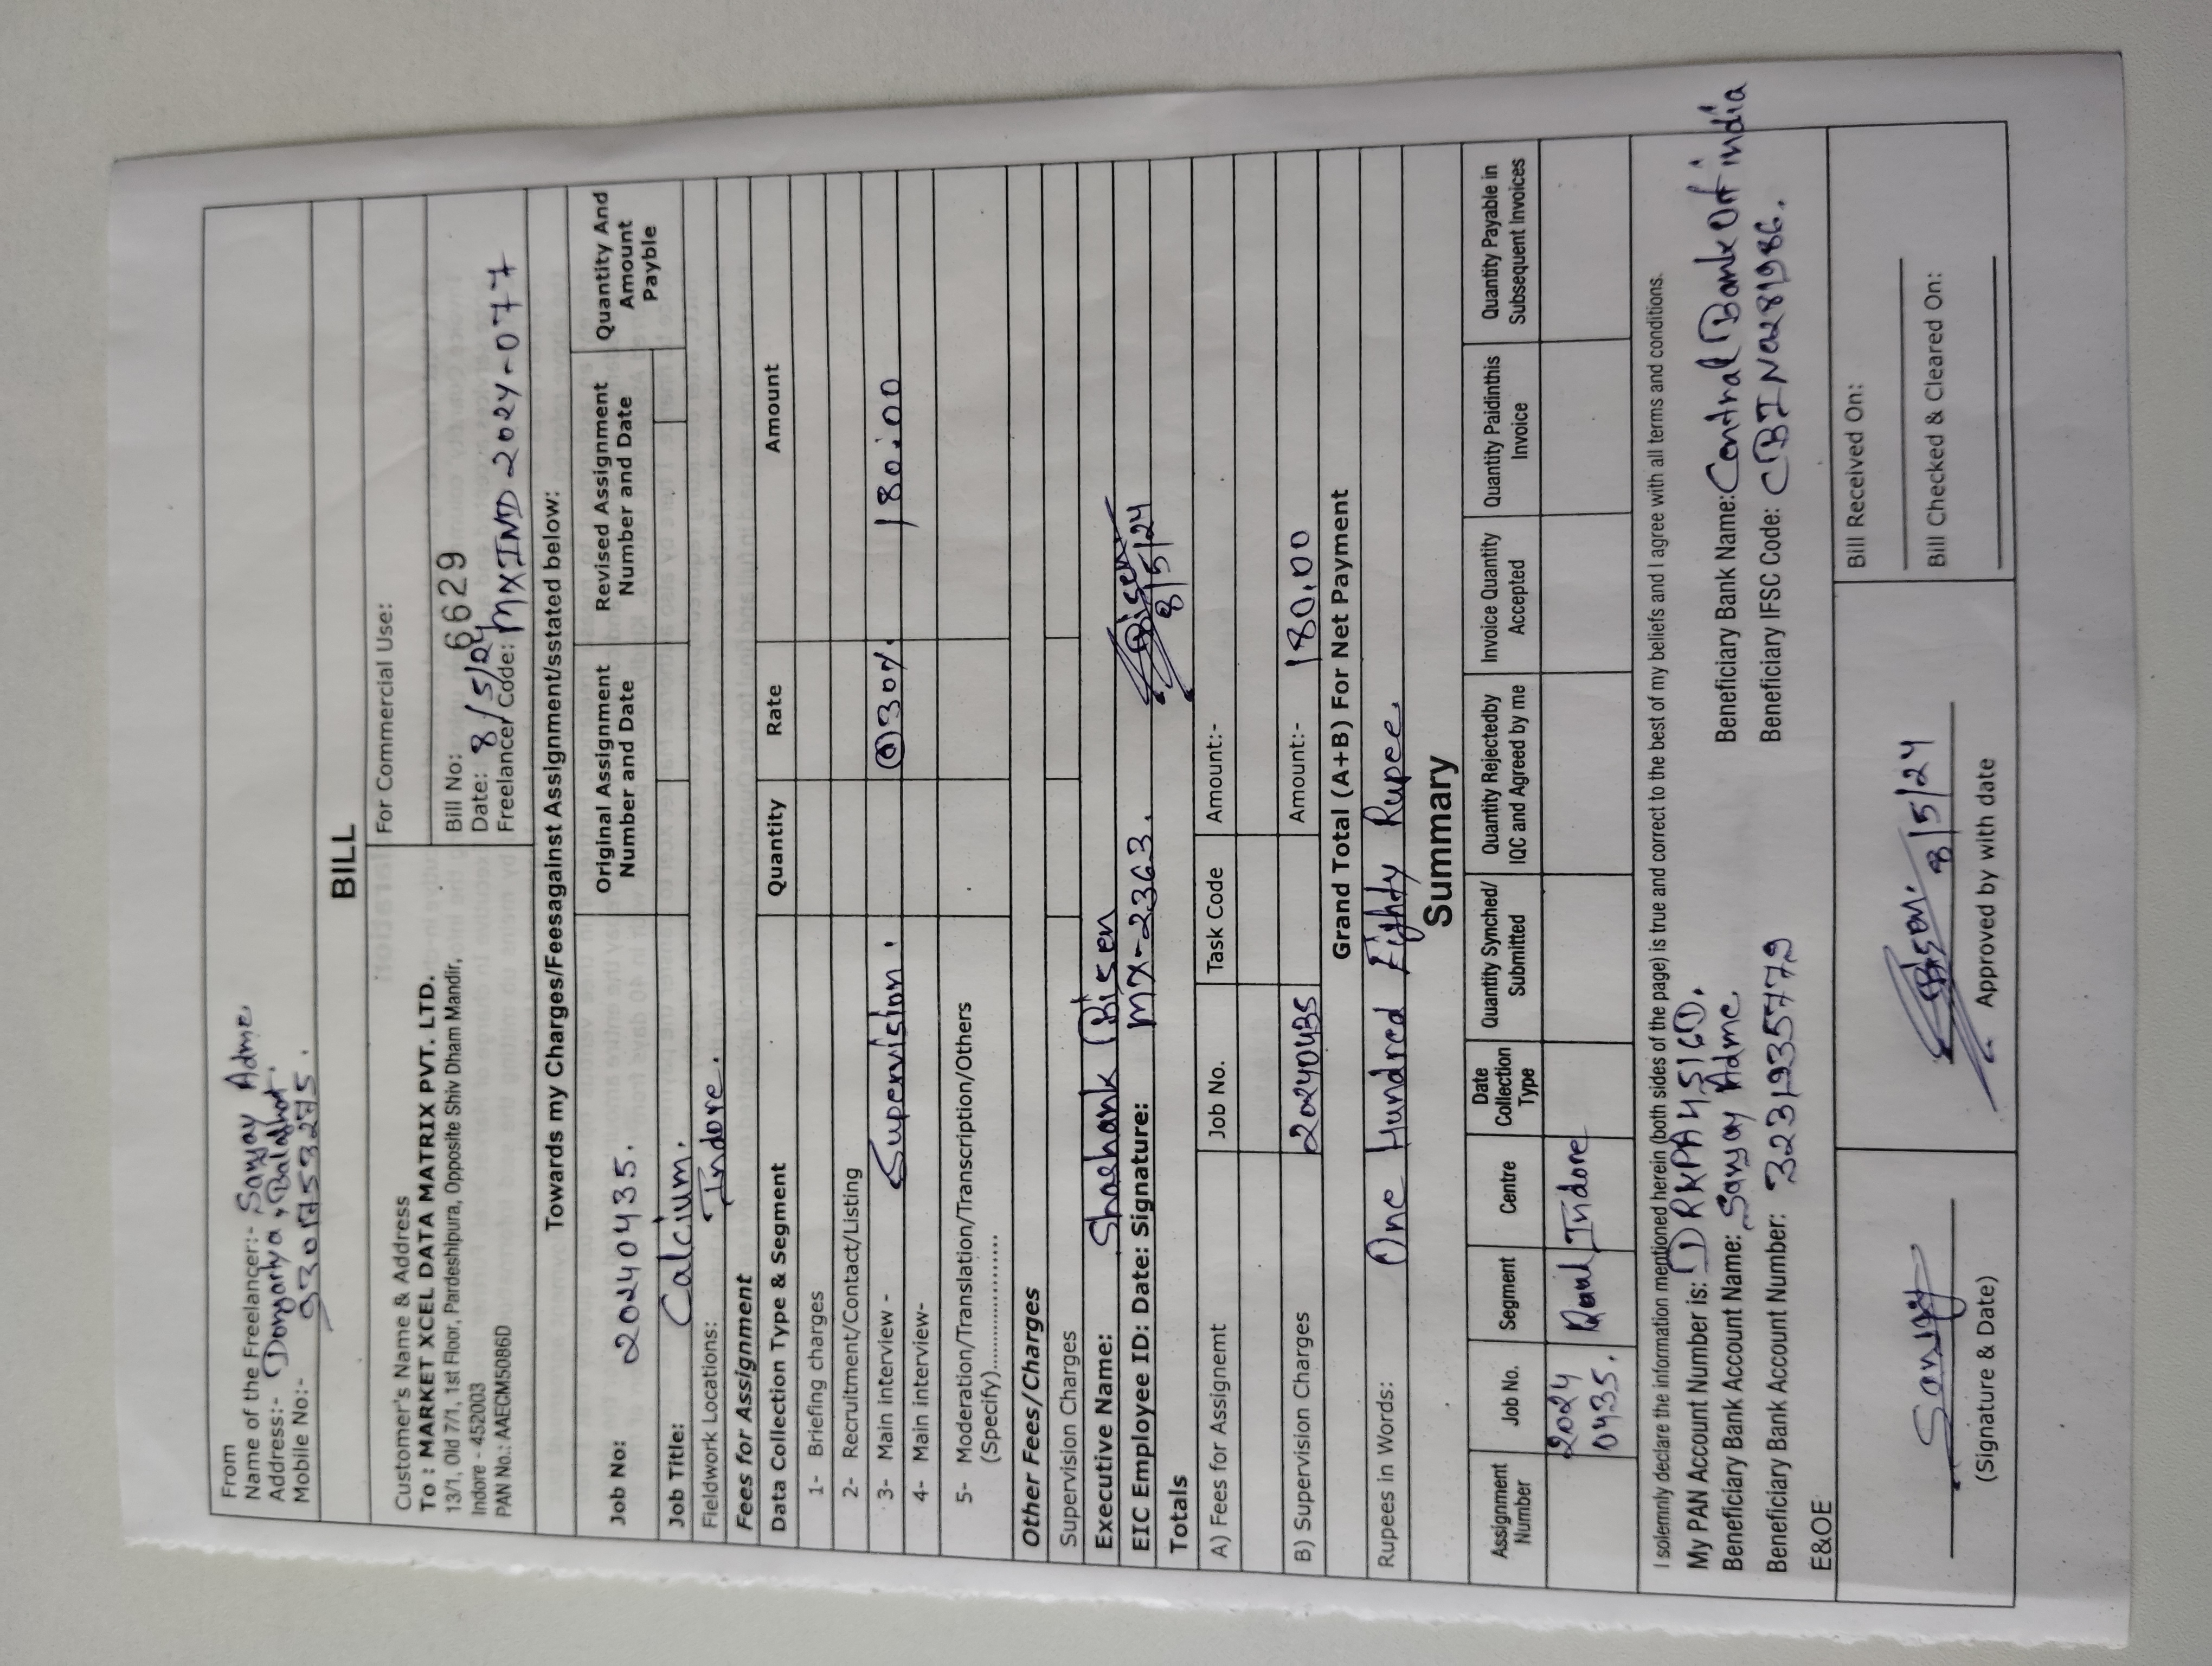 From
Name of the Freelancer:- Sanjay Adme.
Address:- Dongariya, Balaghat.
Mobile No:- 9301753275.
BILL
Customer's Name & Address
To : MARKET XCEL DATA MATRIX PVT. LTD.
13/1, Old 77/1, 1st Floor, Pardeshipura, Opposite Shiv Dham Mandir,
Indore - 452003
PAN No.: AAECM5086D
For Commercial Use:
Bill No: 6629
Date: 8/5/24
Freelancer Code: MXIND 2024-077
Towards my Charges/Feesagainst Assignment/sstated below:
Job No: 20240435.
Original Assignment Number and Date
Revised Assignment Number and Date
Quantity And Amount Payble
Job Title: Calcium.
Fieldwork Locations: Indore.
Fees for Assignment
Data Collection Type & Segment Quantity Rate Amount
1- Briefing charges
2- Recruitment/Contact/Listing
3- Main interview - Supervision. @30%. 180.00
4- Main interview-
5- Moderation/Translation/Transcription/Others
(Specify)......................
Other Fees/Charges
Supervision Charges
Executive Name: Shashank Bisen
EIC Employee ID: Date: Signature: MX-2363. Bisen 8/5/24
Totals
A) Fees for Assignemt Job No. Task Code Amount:-
B) Supervision Charges 20240435 Amount:- 180.00
Grand Total (A+B) For Net Payment
Rupees in Words: One Hundred Eighty Rupee.
Summary
Assignment Number Job No. Segment Centre Date Collection Type Quantity Synched/ Submitted Quantity Rejectedby IQC and Agreed by me Invoice Quantity Accepted Quantity Paidinthis Invoice Quantity Payable in Subsequent Invoices
2024 0435. Indore
I solemnly declare the information mentioned herein (both sides of the page) is true and correct to the best of my beliefs and I agree with all terms and conditions.
My PAN Account Number is: DRKPA4516D.
Beneficiary Bank Account Name: Sanjay Adme.
Beneficiary Bank Account Number: 3231935779
Beneficiary Bank Name: Central Bank Of india
Beneficiary IFSC Code: CBIN0281986.
E&OE
Sanjay
(Signature & Date)
Bisen. 8/5/24
Approved by with date
Bill Received On:
Bill Checked & Cleared On: